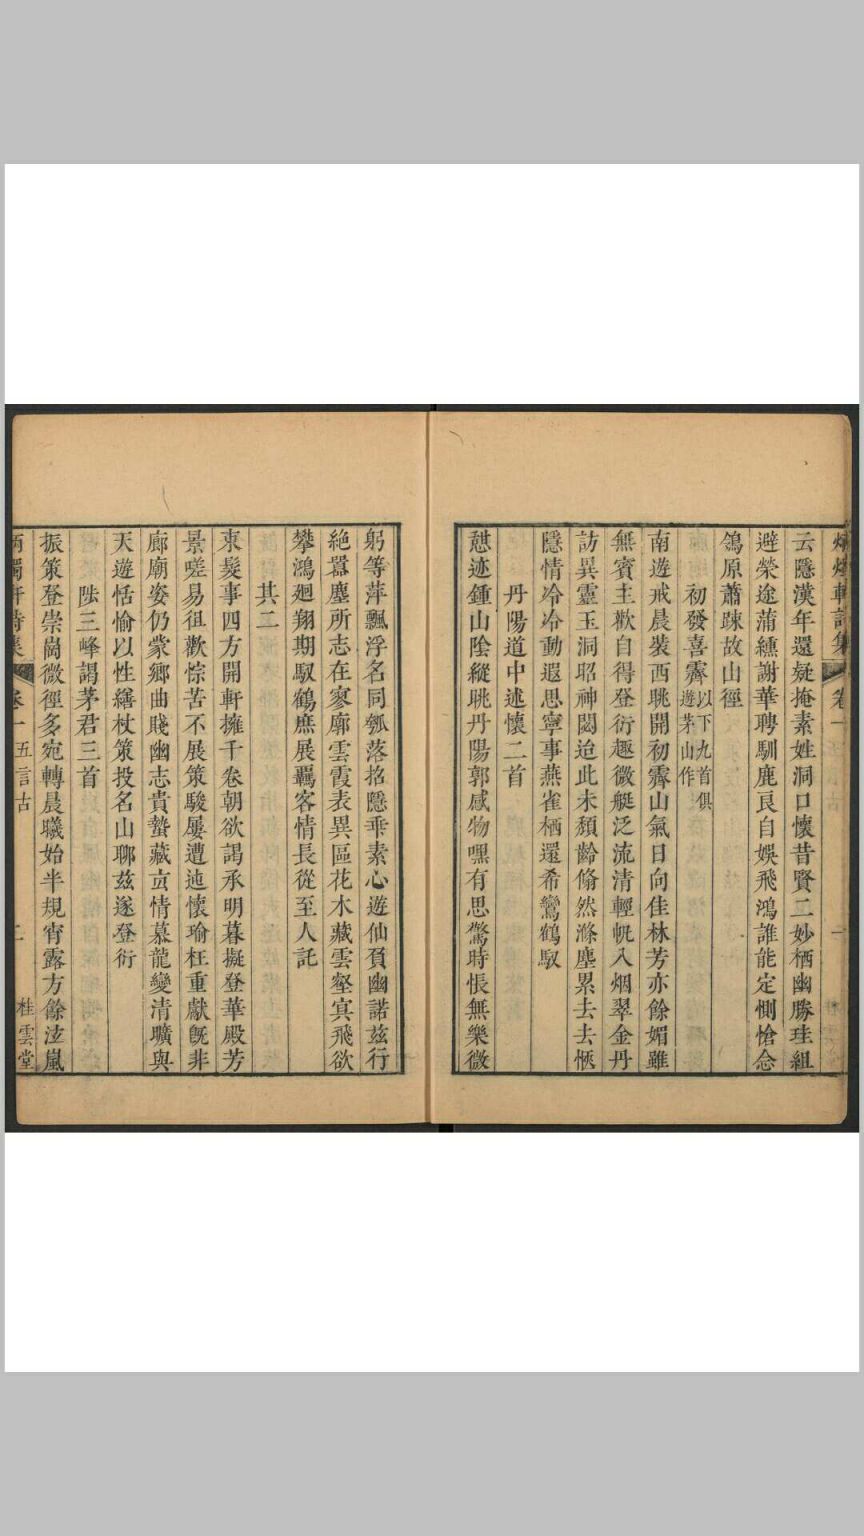 云隱漢年還疑掩素姓洞口懷昔賢二妙栖幽勝珪組
避榮途蒲纁謝華聘馴鹿良自娛飛鴻誰能定惻愴念
鴒原蕭踈故山徑
初發喜霽以下九首俱遊茅山作
南遊戒晨裝西眺開初霽山氣日向佳林芳亦餘媚雖
無賓主歡自得登衍趣微艇泛流清輕帆入烟翠金丹
訪異靈玉洞昭神閟迨此未頹齡翛然滌塵累去去愜
隱情泠泠動遐思寧事燕雀栖還希鸞鶴馭
丹陽道中述懷二首
憇迹鍾山陰縱眺丹陽郭感物嘿有思驚時悵無樂微
躬等萍飄浮名同瓠落招隱乖素心遊仙負幽諾茲行
絕囂塵所志在寥廓雲霞表異區花木藏雲壑寘飛欲
攀鴻廻翔期馭鶴庶展羈客情長從至人託
其二
束髮事四方開軒擁千卷朝欲謁承明暮擬登華殿芳
景嗟易徂歡悰苦不展策駿屢遭迍懷瑜枉重獻旣非
廊廟姿仍蒙鄉曲賤幽志貴蟄藏玄情慕龍變清曠與
天遊恬愉以性繕杖策投名山聊茲遂登衍
陟三峰謁茅君三首
振策登崇崗微徑多宛轉晨曦始半規宵露方餘泫嵐
卷一 五言古 二 桂雲堂